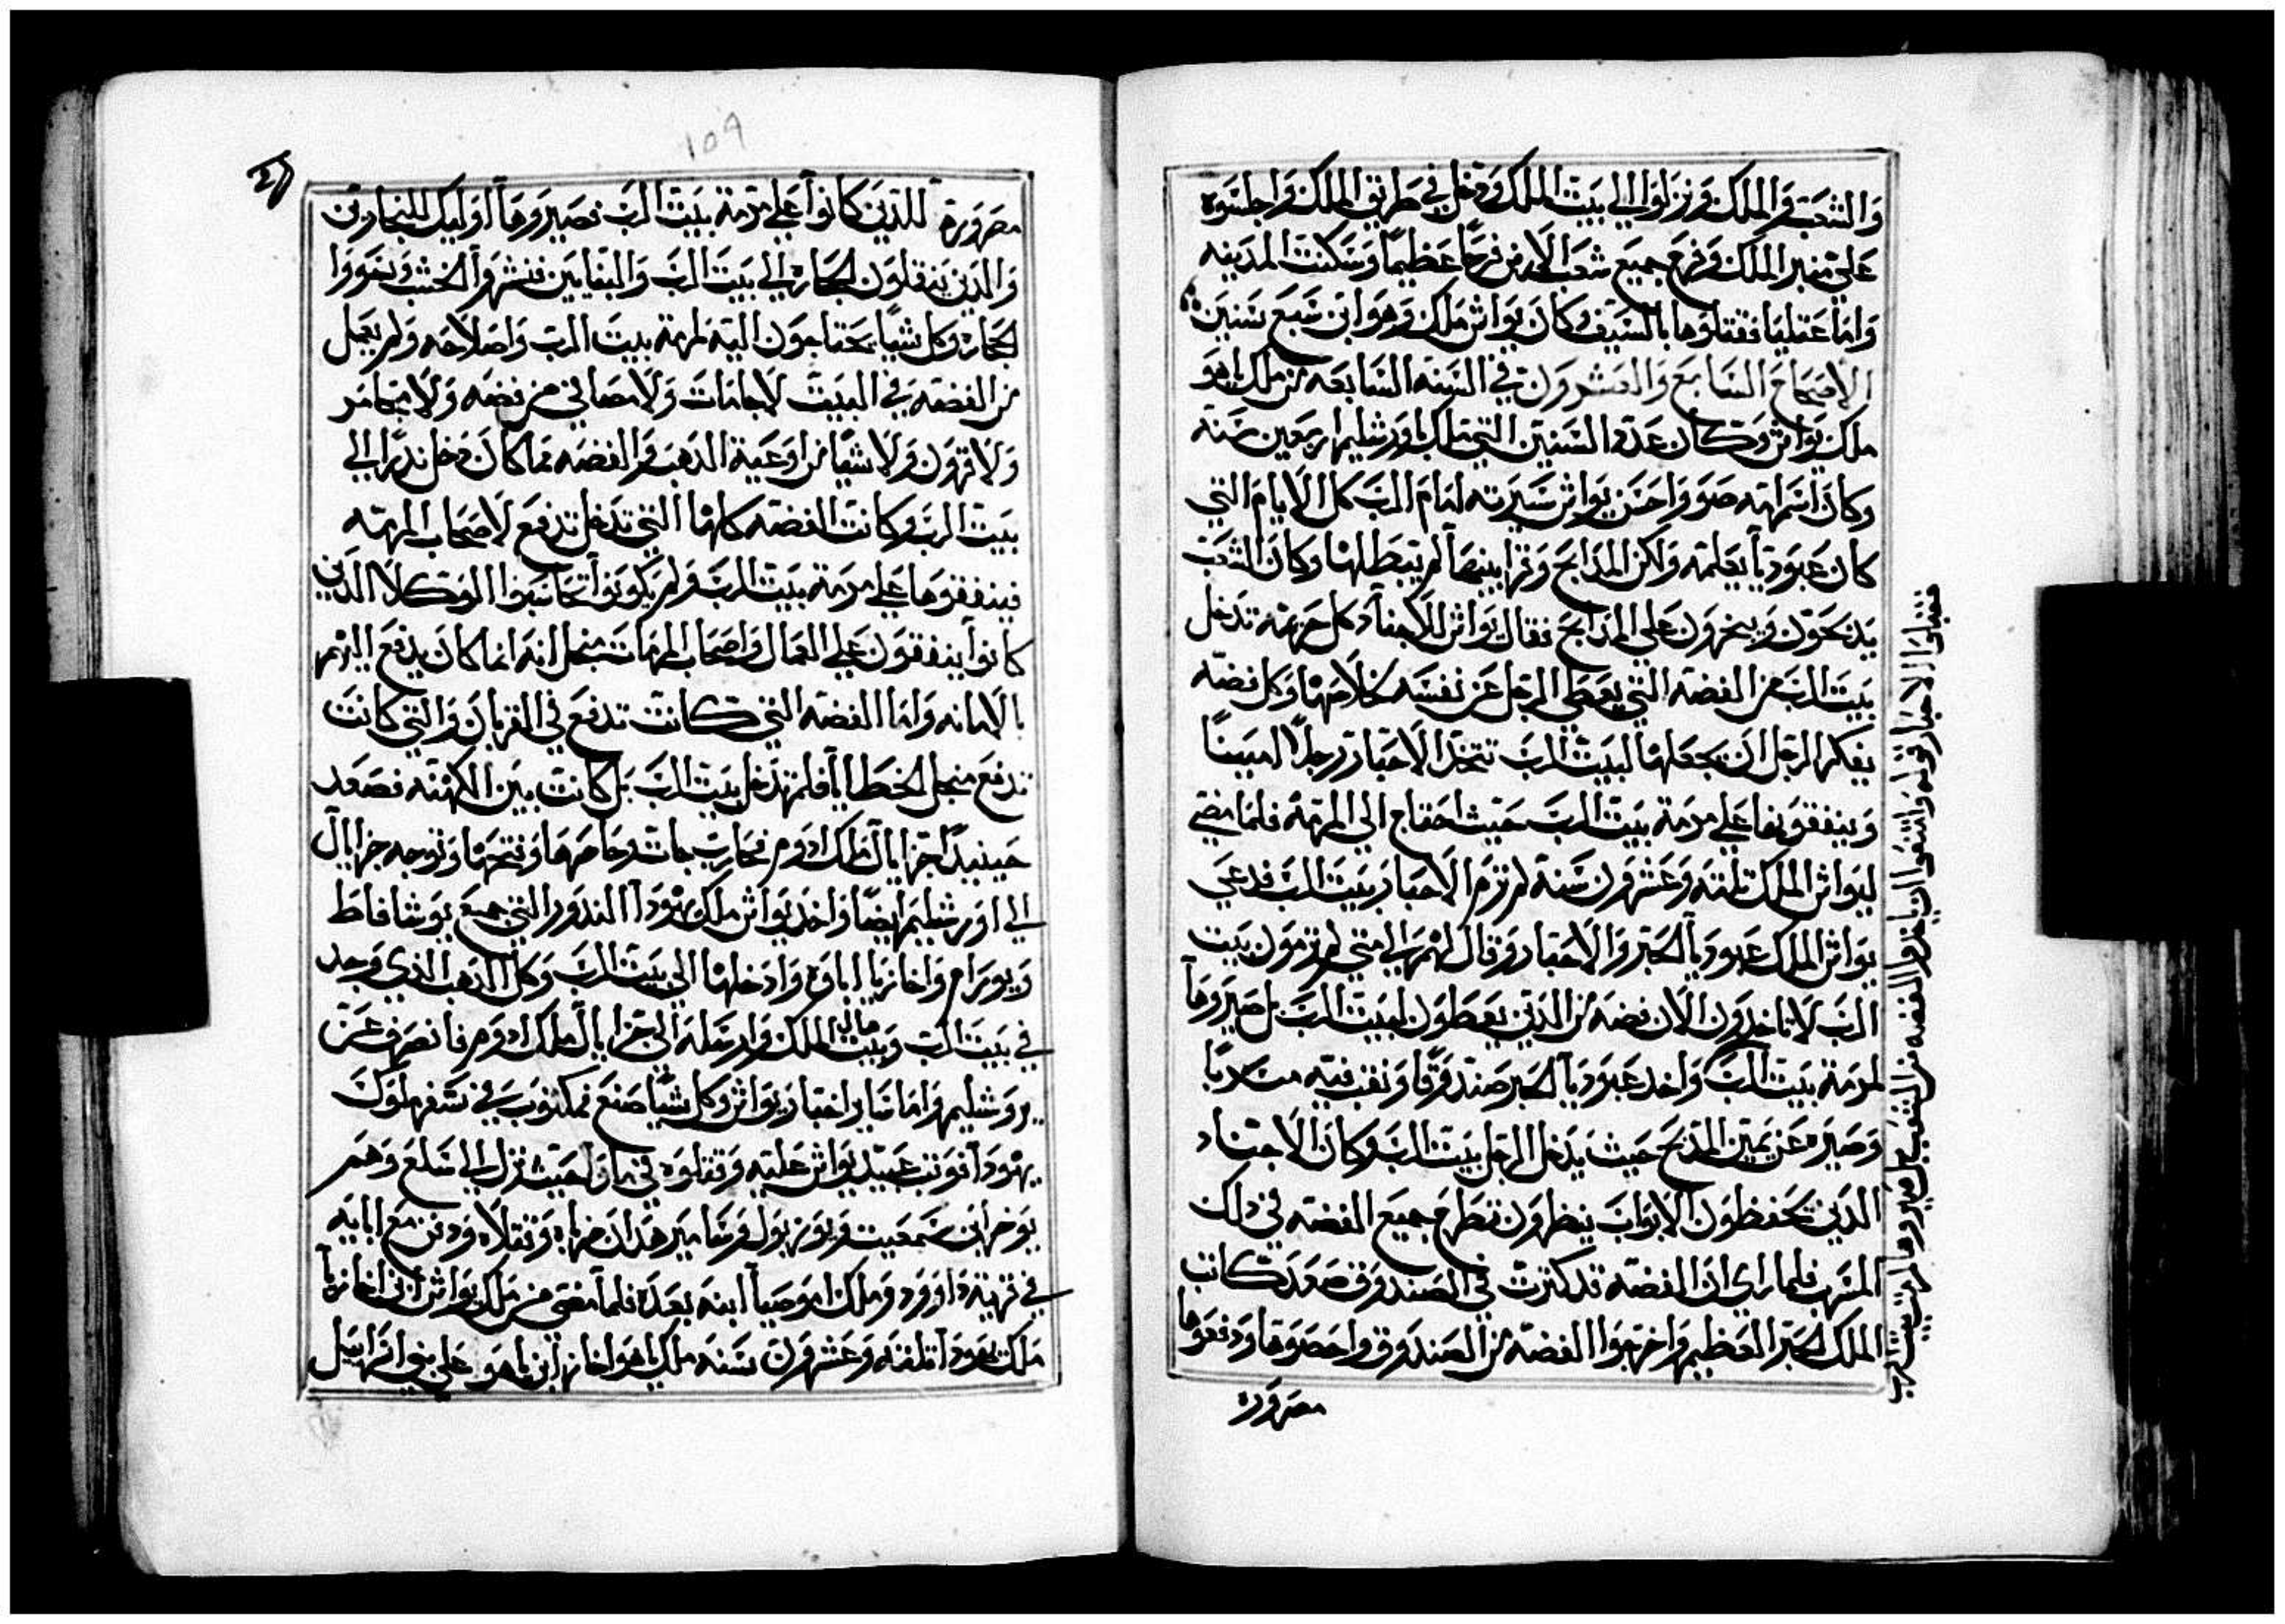 والشعب والملك ونزلوا الي بيت الملك ودخل في طريق الملك واجلسوه
علي منبر الملك وفرح جميع شعب الارض فرحا عظيما وسكنت المدينه
واما عتليا فقتلوها بالسيف وكان يواش ملك وهو ابن سبع سنين
الاصحاح السابع والعشرون في السنه السابعه من ملك ياهو
ملك يواش وكان عدة السنين التي ملك باورشليم اربعين سنه
وكان اسم امه صوو واحسن يواش سيرته امام الرب كل الايام التي
كان عبوديا يعلمه ولكن المذابح وقرابينها لم يبطلها وكان الشعب
يذبحون ويبخرون علي المذابح فقال يواش للاحبار كل حرمه تدخل
بيت الرب من الفضه التي يعطي الرجل عن نفسه خلاصها وكل فضه
يفكر الرجل ان يجعلها لبيت الرب تتخذ الاحبار رجلا امينا
وينفقونها علي مرمة بيت الرب حيث احتاج الي المرمه فلما مضي
ليواش الملك ثلثه وعشرون سنة لم ترم الاحبار بيت الرب فدعي
يواش الملك عبوديا الحبر والاحبار وقال لهم الي متي لم ترمون بيت
الرب لا تاخذون الان فضه من الذين يعطون لبيت الرب بل صيروها
لمرمة بيت الرب واخذ عبوديا الحبر صندوقا ونقب فيه
وصيره عن يمين المذبح حيث يدخل الرجل بيت الرب وكان الاجناد
الذين يحفظون الابواب ينظرون تطرح جميع الفضه في ذلك
المنهب فلما راي ان الفضه قد كثرت في الصندوق صعد كاتب
الملك الحبر العظيم واخرجوا الفضه من الصندوق واحصوها ودفعوها
مصروره
فقبلوا الاحبار قوله واتفقوا ان ياخذوا الفضه من الشعب بل صيروها لمرمة بيت الرب
109
مصرورة للذين كانوا علي مرمة بيت الرب فصيروها اوليك للنجارين
والذين ينقلون الحجاره الي بيت الرب والبنايين فنشروا الخشب ونحووا
الحجاره وكل شيا يحتاجون اليه لمرمة بيت الرب واصلاحه ولم يعمل
من الفضه في البيت لاجامات ولا مصافي من فضه ولا مجامر
ولا قرون ولا شيا من اوعية الذهب والفضه مما كان دخل نذرا الي
بيت الرب وكانت الفضه كلها التي تدخل تدفع لاصحاب المرمه
فينفقوها علي مرمة بيت الرب ولم يكونوا يحاسبوا الوكلا الذين
كانوا ينفقون علي العمال واصحاب المرمات منجل انه انما كان يدفع اليهم
بالامانه واما الفضه التي كانت تدفع في القربان والتي كانت
تدفع منجل الخطايا فلم تدخل بيت الرب بل كانت بين الكهنه فصعد
حينيذا حزايال ملك ادوم فحارب جات وحاصرها وفتحها وتوجه حزايال
الي اورشليم ايضا واخذ يواش ملك يهودا الندور التي جميع يوشافاط
ويورام واخازيا اباوه وادخلها الي بيت الرب وكل الذهب الذي وجد
في بيت الرب وبيت مال الملك وارسله الي حزايال ملك ادوم فانصرف عن
يروشليم واما ساير اخبار يواش وكل شيا صنع فمكتوب في سفر ملوك
يهودا فوتب عبيد يواش عليه وقتلوه في مالو حيث نزل الي سلع وهم
يوخر ابن سمعيت ويوزبول وسامير هذان ضرباه وقتلاه ودفن مع ابايه
في قرية داوود وملك اموصيا ابنه بعده فلما مضي من ملك يواش ابن اخازيا
ملك يهودا ثلثه وعشرون سنه ملك ياهواخاز ابن ياهو علي بني اسراييل